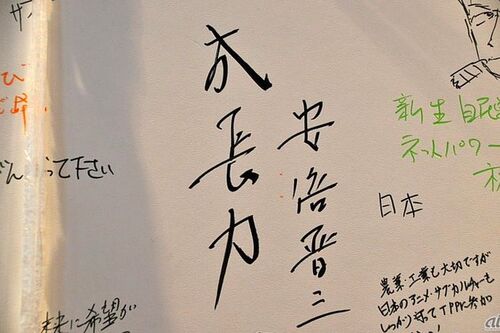 成長力
安倍晋三
新生自民
ネットパワー
日本
農業・工業も大切ですが
日本のアニメ・サブカルチャーも
しっかり守ってTPPに参加
って下さい
未来に希望が